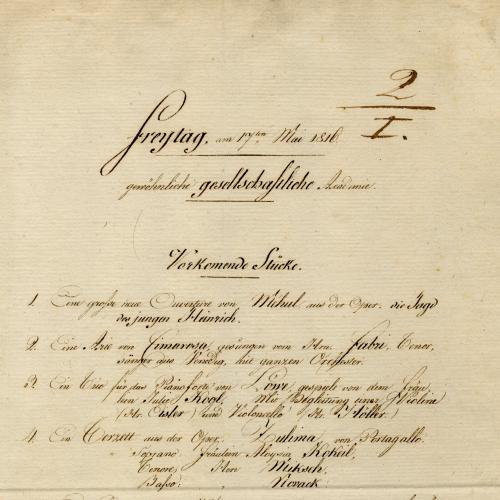 2
I.
Freytag, am 17ten Mai 1816.
gewöhnliche gesellschaftliche Academie.
Vorkomende Stücke.
1. Eine große neue Ouverture von Mehul aus der Oper: die Jagd
des jungen Heinrich.
2. Eine Arie von Cimarosa, gesungen von Hrn. Fabri, Tenor,
sänger aus Venedig, mit ganzen Orchester.
3. Ein Trio für das Pianoforte von gespielt von dem Fräu,
lein Julie Mit Begleitung einer Violine
(Hr. Eisler) und Violoncello Hr. Höller.)
4. Ein Terzett aus der Oper, Zulima, von Portagallo.
Soprano Fräulein Aloysia
Tenore, Herr Miksch,
Basso: Novack.